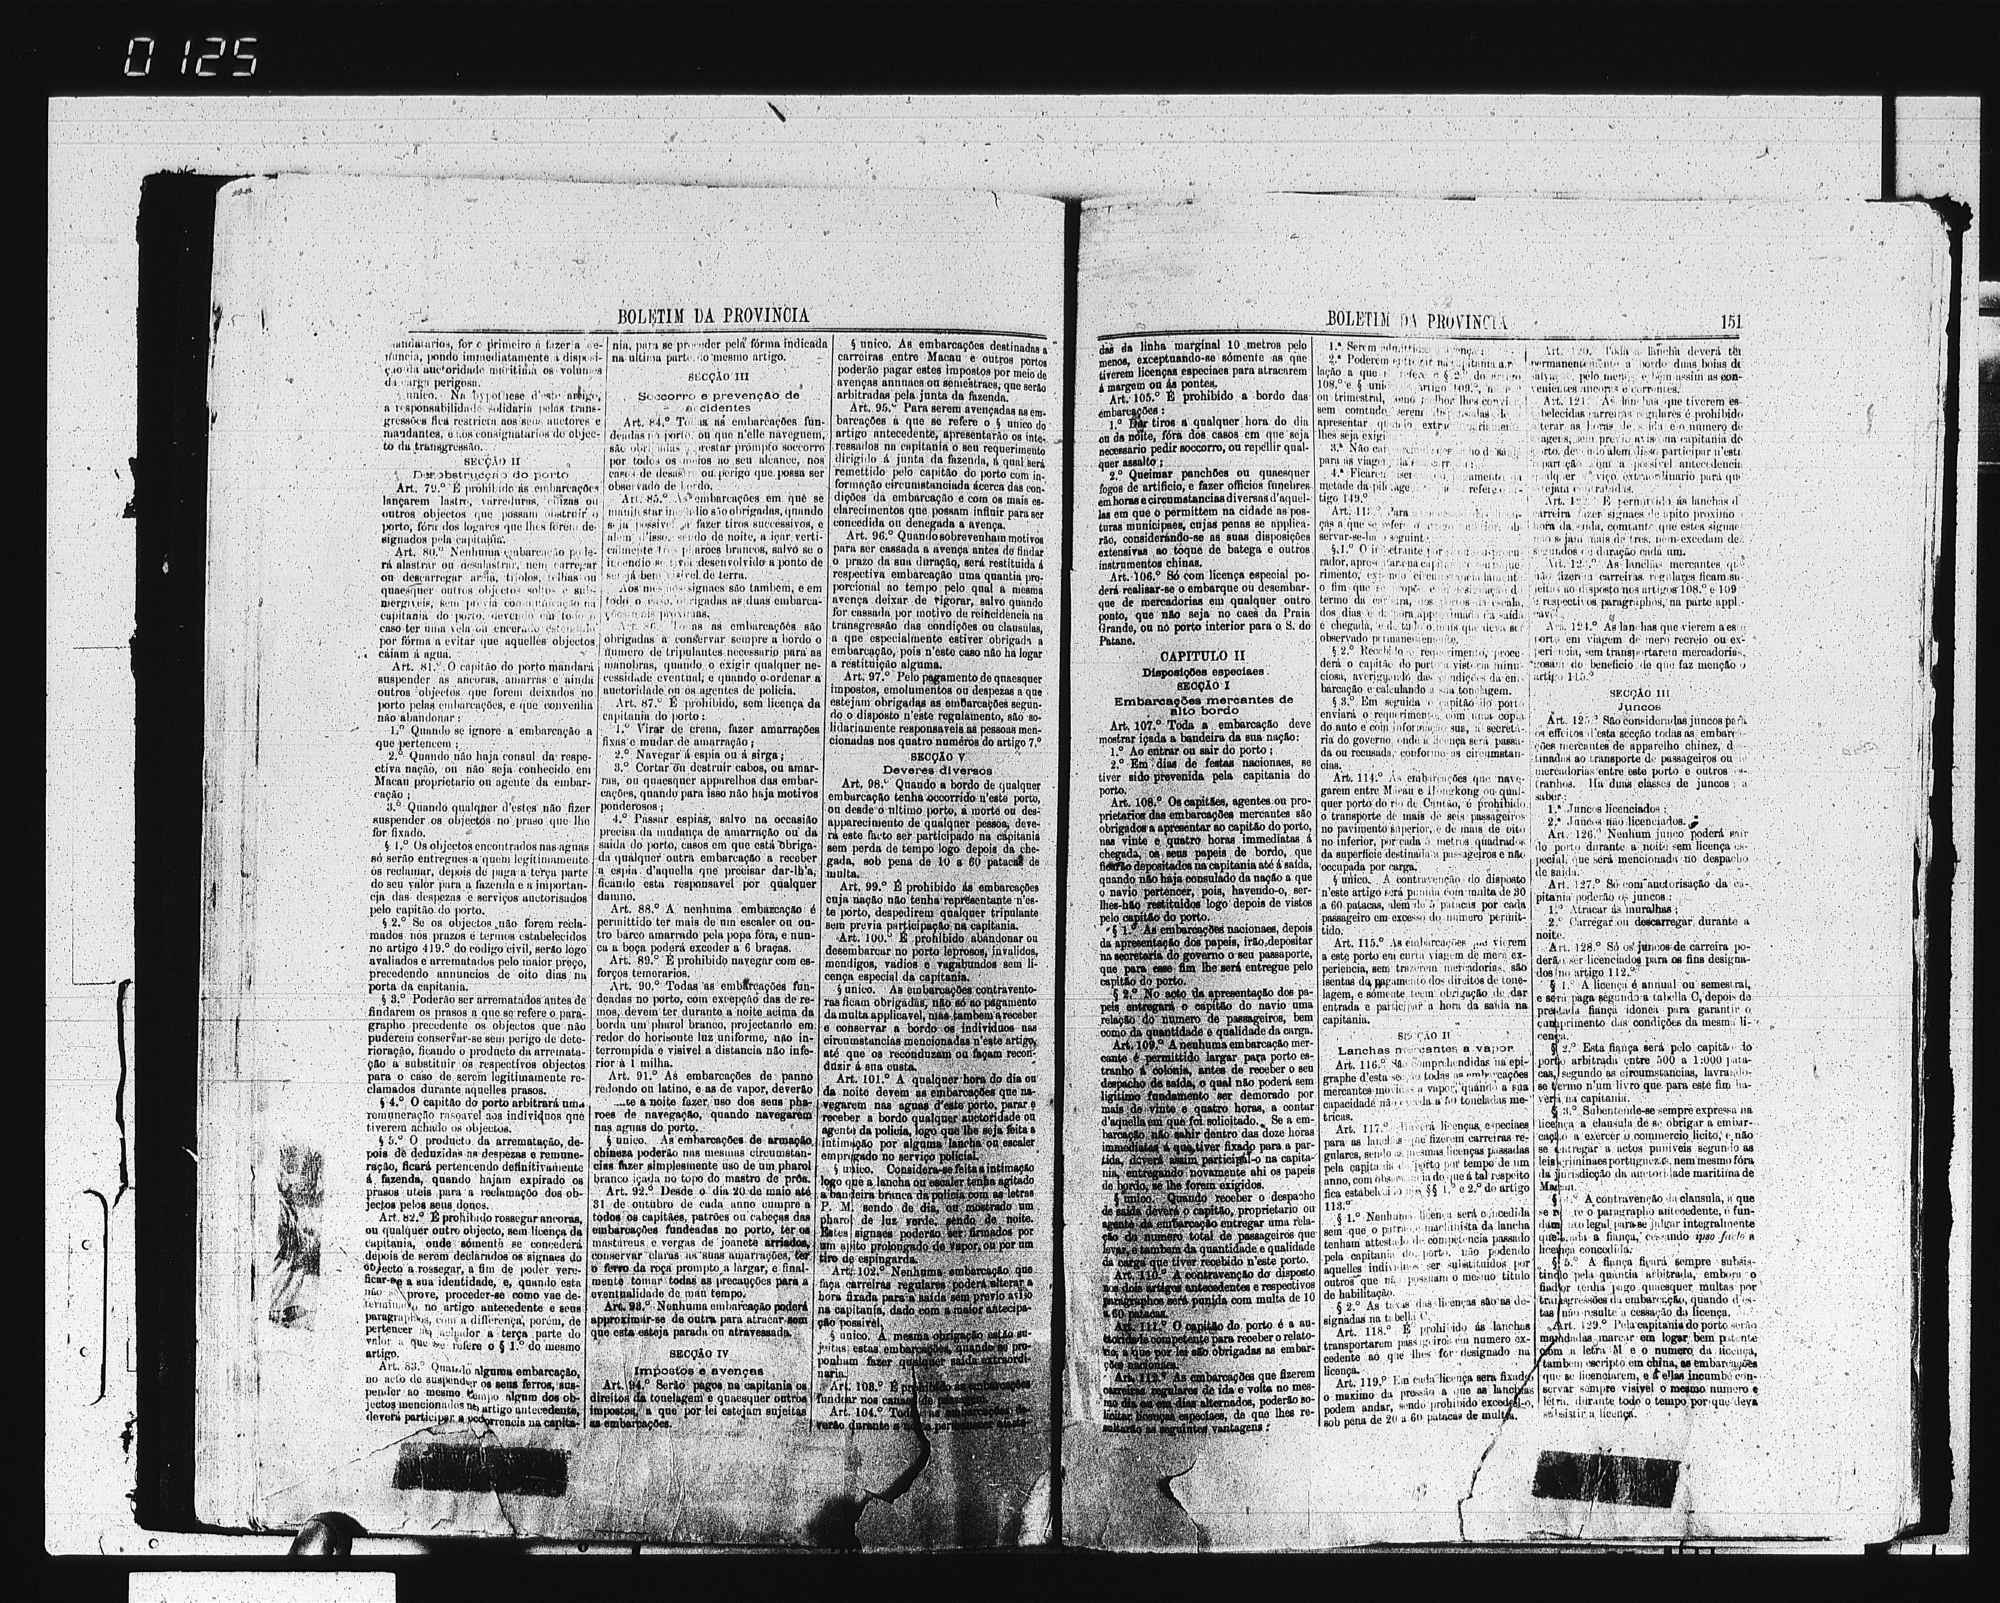 0125
BOLETIM DA PROVINCIA
mandatarios, for o primeiro a fazer a de-
nuncia, pondo immediatamente á disposi-
ção da auctoridade maritima os volumes
da carga perigosa.
unico. Na hypothese d'este artigo,
a responsabilidade solidaria pelas trans-
gressões fica restricta aos seus auctores e
mandantes, e aos consignatarios do objec-
to da transgressão.
SECÇÃO II
Desobstrucção do porto
Art. 79.º É prohibido ás embarcações
lançarem lastro, varreduras, cinzas ou
outros objectos que possam obstruir o
porto, fóra dos logares que lhes forem de-
signados pela capitania.
Art. 80.º Nenhuma embarcação pode-
rá alastrar ou desalastrar, nem carregar
ou descarregar arêa, tijolos, telhas ou
quaesquer outros objectos soltos e sub-
mergiveis, sem previa communicação na
capitania do porto, devendo em todo o
caso ter uma vela ou encerado estendido
por fórma a evitar que aquelles objectos
caiam á agua.
Art. 81.º O capitão do porto mandará
suspender as ancoras, amarras e ainda
outros objectos que forem deixados no
porto pelas embarcações, e que convenha
não abandonar:
1.º Quando se ignore a embarcação a
que pertencem;
2.º Quando não haja consul da respe-
ctiva nação, ou não seja conhecido em
Macau proprietario ou agente da embar-
cação;
3.º Quando qualquer d'estes não fizer
suspender os objectos no praso que lhe
for fixado.
§ 1.º Os objectos encontrados nas aguas
só serão entregues a quem legitimamente
os reclamar, depois de paga a terça parte
do seu valor para a fazenda e a importan-
cia das despezas e serviços auctorisados
pelo capitão do porto.
§ 2.º Se os objectos não forem recla-
mados nos prazos e termos estabelecidos
no artigo 419.º do codigo civil, serão logo
avaliados e arrematados pelo maior preço,
precedendo annuncios de oito dias na
porta da capitania.
§ 3.º Poderão ser arrematados antes de
findarem os prasos a que se refere o para-
grapho precedente os objectos que não
puderem conservar-se sem perigo de dete-
rioração, ficando o producto da arremata-
ção a substituir os respectivos objectos
para o caso de serem legitimamente re-
clamados durante aquelles prasos.
§ 4.º O capitão do porto arbitrará uma
remuneração rasoavel aos individuos que
tiverem achado os objectos.
§ 5.º O producto da arrematação, de-
pois de deduzidas as despezas e remune-
ração, ficará pertencendo definitivamente
á fazenda, quando hajam expirado os
prasos uteis para a reclamação dos ob-
jectos pelos seus donos.
Art. 82.º É prohibido rossegar ancoras,
ou qualquer outro objecto, sem licença da
capitania, onde sómente se concederá
depois de serem declarados os signaes do
objecto a rossegar, a fim de poder veri-
ficar-se a sua identidade, e, quando esta
não se prove, proceder-se como vae de-
terminado no artigo antecedente e seus
paragraphos, com a differença, porém, de
pertencer ao achador a terça parte do
valor a que se refere o § 1.º do mesmo
artigo.
Art. 83.º Quando alguma embarcação,
no acto de suspender os seus ferros, sus-
pender ao mesmo tempo algum dos ob-
jectos mencionados no artigo antecedente,
deverá participar a occorrencia na capita-
nia, para se proceder pela fórma indicada
na ultima parte do mesmo artigo.
SECÇÃO III
Soccorro e prevenção de
accidentes
Art. 84.º Todas as embarcações fun-
deadas no porto, ou que n'elle naveguem,
são obrigadas a prestar prompto soccorro
por todos os meios ao seu alcance, nos
casos de desastre ou perigo que possa ser
observado de bordo.
Art. 85.º As embarcações em que se
manifestar incendio são obrigadas, quando
seja possivel, a fazer tiros successivos, e
alem d'isso, sendo de noite, a içar verti-
calmente tres pharoes brancos, salvo se o
incendio se tiver desenvolvido a ponto de
ser já bem visivel de terra.
Aos mesmos signaes são tambem, e em
todo o caso, obrigadas as duas embarca-
ções mais proximas.
Art. 86.º Todas as embarcações são
obrigadas a conservar sempre a bordo o
numero de tripulantes necessario para as
manobras, quando o exigir qualquer ne-
cessidade eventual, e quando o ordenar a
auctoridade ou os agentes de policia.
Art. 87.º É prohibido, sem licença da
capitania do porto:
1.º Virar de crena, fazer amarrações
fixas e mudar de amarração;
2.º Navegar á espia ou á sirga;
3.º Cortar ou destruir cabos, ou amar-
ras, ou quaesquer apparelhos das embar-
cações, quando para isso não haja motivos
ponderosos;
4.º Passar espias, salvo na occasião
precisa da mudança de amarração ou da
saída do porto, casos em que está obriga-
da qualquer outra embarcação a receber
a espia d'aquella que precisar dar-lh'a,
ficando esta responsavel por qualquer
damno.
Art. 88.º A nenhuma embarcação é
permittido ter mais de um escaler ou ou-
tro barco amarrado pela popa fóra, e nun-
ca a boça poderá exceder a 6 braças.
Art. 89.º É prohibido navegar com es-
forços temerarios.
Art. 90.º Todas as embarcações fun-
deadas no porto, com excepção das de re-
mos, devem ter durante a noite acima da
borda um pharol branco, projectando em
redor do horisonte luz uniforme, não in-
terrompida e visivel a distancia não infe-
rior a 1 milha.
Art. 91.º As embarcações de panno
redondo ou latino, e as de vapor, deverão
te a noite fazer uso dos seus pha-
roes de navegação, quando navegarem
nas aguas do porto.
§ unico. As embarcações de armação
chineza poderão nas mesmas circumstan-
cias fazer simplesmente uso de um pharol
branco içado no topo do mastro de prôa.
Art. 92.º Desde o dia 20 de maio até
31 de outubro de cada anno cumpre a
todos os capitães, patrões ou cabeças das
embarcações fundeadas no porto, ter os
mastareus e vergas de joanete arriados,
conservar claras as suas amarrações, ter
o ferro da roça prompto a largar, e final-
mente tomar todas as precauções para a
eventualidade de mau tempo.
Art. 93.º Nenhuma embarcação poderá
approximar-se de outra para atracar sem
que esta esteja parada ou atravessada.
SECÇÃO IV
Impostos e avenças
Art. 94.º Serão pagos na capitania os
direitos da tonelagem e quaesquer outros
impostos, a que por lei estejam sujeitas
as embarcações.
§ unico. As embarcações destinadas a
carreiras entre Macau e outros portos
poderão pagar estes impostos por meio de
avenças annuaes ou semestraes, que serão
arbitradas pela junta da fazenda.
Art. 95.º Para serem avençadas as em-
barcações a que se refere o § unico do
artigo antecedente, apresentarão os inte-
ressados na capitania o seu requerimento
dirigido á junta da fazenda, á qual será
remettido pelo capitão do porto com in-
formação circumstanciada ácerca das con-
dições da embarcação e com os mais es-
clarecimentos que possam influir para ser
concedida ou denegada a avença.
Art. 96.º Quando sobrevenham motivos
para ser cassada a avença antes de findar
o prazo da sua duração, será restituida á
respectiva embarcação uma quantia pro-
porcional ao tempo pelo qual a mesma
avença deixar de vigorar, salvo quando
for cassada por motivo de reincidencia na
transgressão das condições ou clausulas,
a que especialmente estiver obrigada a
embarcação, pois n'este caso não ha logar
a restituição alguma.
Art. 97.º Pelo pagamento de quaesquer
impostos, emolumentos ou despezas a que
estejam obrigadas as embarcações segun-
do o disposto n'este regulamento, são so-
lidariamente responsaveis as pessoas men-
cionadas nos quatro numeros do artigo 7.º
SECÇÃO V
Deveres diversos
Art. 98.º Quando a bordo de qualquer
embarcação tenha occorrido n'este porto,
ou desde o ultimo porto, a morte ou des-
apparecimento de qualquer pessoa, deve-
rá este facto ser participado na capitania
sem perda de tempo logo depois da che-
gada, sob pena de 10 a 60 patacas de
multa.
Art. 99.º É prohibido ás embarcações
cuja nação não tenha representante n'es-
te porto, despedirem qualquer tripulante
sem previa participação na capitania.
Art. 100.º É prohibido abandonar ou
desembarcar no porto leprosos, invalidos,
mendigos, vadios e vagabundos sem li-
cença especial da capitania.
§ unico. As embarcações contravento-
ras ficam obrigadas, não só ao pagamento
da multa applicavel, mas tambem a receber
e conservar a bordo os individuos nas
circumstancias mencionadas n'este artigo,
até que os reconduzam ou façam recon-
duzir á sua custa.
Art. 101.º A qualquer hora do dia ou
da noite devem as embarcações que na-
vegarem nas aguas d'este porto, parar e
receber a bordo qualquer auctoridade ou
agente da policia, logo que lhe seja feita a
intimação por alguma lancha ou escaler
empregado no serviço policial.
§ unico. Considera-se feita a intimação
logo que a lancha ou escaler tenha agitado
a bandeira branca da policia com as letras
P. M. sendo de dia, ou mostrado um
pharol de luz verde, sendo de noite.
Estes signaes poderão ser firmados por
um apito prolongado de vapor, ou por um
tiro de espingarda.
Art. 102.º Nenhuma embarcação que
faça carreiras regulares poderá alterar a
hora fixada para a saída sem previo aviso
na capitania, dado com a maior antecipa-
ção possivel.
§ unico. Á mesma obrigação estão su-
jeitas estas embarcações, quando se pro-
ponham fazer qualquer saída extraordi-
naria.
Art. 103.º É prohibido ás embarcações
fundear nos canaes de
Art. 104.º Todas as embarcações
verão durante a noite permanecer
BOLETIM DA PROVINCIA 151
das da linha marginal 10 metros pelo
menos, exceptuando-se sómente as que
tiverem licenças especiaes para atracarem
á margem ou ás pontes.
Art. 105.º É prohibido a bordo das
embarcações:
1.º Dar tiros a qualquer hora do dia
ou da noite, fóra dos casos em que seja
necessario pedir soccorro, ou repellir qual-
quer assalto;
2.º Queimar panchões ou quaesquer
fogos de artificio, e fazer officios funebres
em horas e circumstancias diversas d'aquel-
las em que o permittem na cidade as pos-
turas municipaes, cujas penas se applica-
rão, considerando-se as suas disposições
extensivas ao toque de batega e outros
instrumentos chinas.
Art. 106.º Só com licença especial po-
derá realisar-se o embarque ou desembar-
que de mercadorias em qualquer outro
ponto, que não seja no caes da Praia
Grande, ou no porto interior para o S. do
Patane.
CAPITULO II
Disposições especiaes
SECÇÃO I
Embarcações mercantes de
alto bordo
Art. 107.º Toda a embarcação deve
mostrar içada a bandeira da sua nação:
1.º Ao entrar ou sair do porto;
2.º Em dias de festas nacionaes, se
tiver sido prevenida pela capitania do
porto.
Art. 108.º Os capitães, agentes ou pro-
prietarios das embarcações mercantes são
obrigados a apresentar ao capitão do porto,
nas vinte e quatro horas immediatas á
chegada, os seus papeis de bordo, que
ficarão depositados na capitania até á saída,
quando não haja consulado da nação a que
o navio pertencer, pois, havendo-o, ser-
lhes-hão restituidos logo depois de vistos
pelo capitão do porto.
§ 1.º As embarcações nacionaes, depois
da apresentação dos papeis, irão depositar
na secretaria do governo o seu passaporte,
que para esse fim lhe será entregue pelo
capitão do porto.
§ 2.º No acto da apresentação dos pa-
peis entregará o capitão do navio uma
relação do numero de passageiros, bem
como da quantidade e qualidade da carga.
Art. 109.º A nenhuma embarcação mer-
cante é permittido largar para porto es-
tranho á colonia, antes de receber o seu
despacho de saída, o qual não poderá sem
legitimo fundamento ser demorado por
mais de vinte e quatro horas, a contar
d'aquella em que foi solicitado. Se a em-
barcação não sahir dentro das doze horas
immediatas á que tiver fixado para a par-
tida, deverá assim participal-o na capita-
nia, entregando novamente ahi os papeis
de bordo, se lhe forem exigidos.
§ unico. Quando receber o despacho
de saída deverá o capitão, proprietario ou
agente da embarcação entregar uma rela-
ção do numero total de passageiros que
levar, e tambem da quantidade e qualidade
da carga que tiver recebido n'este porto.
Art. 110.º A contravenção do disposto
nos dois artigos antecedentes e respectivos
paragraphos será punida com multa de 10
a 60 patacas.
Art. 111.º O capitão do porto é a au-
ctoridade competente para receber o relato-
rio, a que por lei são obrigadas as embar-
cações nacionaes.
Art. 112.º As embarcações que fizerem
carreiras regulares de ida e volta no mes-
mo dia ou em dias alternados, poderão so-
licitar licenças especiaes, de que lhes re-
sultarão as seguintes vantagens:
1.ª Serem
2.ª Poderem
lação a que
108.º e § unico
ou trimestral,
sem comtudo serem
apresentar
lhes seja exigi
3.ª Não
para as viagens
4.ª Ficarem
metade da
tigo 149.º
Art. 113.º Para
ças a que se refere o
servar-se-ha o seguinte:
§ 1.º O impetrante
rador, apresentará na capitania
rimento, expondo
o fim que se propõe
termo da carreira,
dos dias e da hora approximada da saída
e chegada, e de tudo o mais que deva ser
observado permanentemente.
§ 2.º Recebido o requerimento, proce-
derá o capitão do porto a vistoria minu-
ciosa, averiguando das condições da em-
barcação e calculando a sua tonelagem.
§ 3.º Em seguida o capitão do porto
enviará o requerimento com uma copia
do auto e com informação sua, á secreta-
ria do governo onde a licença será passa-
da ou recusada, conforme as circumstan-
cias.
Art. 114.º As embarcações que nave-
garem entre Macau e Hongkong ou qual-
quer porto do rio de Cantão, é prohibido
o transporte de mais de seis passageiros
no pavimento superior, e de mais de oito
no inferior, por cada 5 metros quadrados
da superficie destinada a passageiros e não
occupada por carga.
§ unico. A contravenção do disposto
n'este artigo será punida com multa de 30
a 60 patacas, alem de 5 patacas por cada
passageiro em excesso do numero permit-
tido.
Art. 115.º As embarcações que vierem
a este porto em curta viagem de mera ex-
periencia, sem trazerem mercadorias, são
isentas do pagamento dos direitos de tone-
lagem, e sómente teem obrigação de dar
entrada e participar a hora da saída na
capitania.
SECÇÃO II
Lanchas mercantes a vapor
Art. 116.º São comprehendidas na epi-
graphe d'esta secção todas as embarcações
mercantes movidas a vapor, quando a sua
capacidade não exceda a 50 toneladas me-
tricas.
Art. 117.º Haverá licenças, especiaes
para as lanchas que fizerem carreiras re-
gulares, sendo as mesmas licenças passadas
pela capitania do porto por tempo de um
anno, com observancia do que a tal respeito
fica estabelecido nos §§ 1.º e 2.º do artigo
113.º
§ 1.º Nenhuma licença será concedida
sem que o patrão e machinista da lancha
tenham attestado de competencia passado
pela capitania do porto, não podendo
aquelles individuos ser substituidos por
outros que não possuam o mesmo titulo
de habilitação.
§ 2.º As taxas das licenças são as de-
signadas na tabella C.
Art. 118.º É prohibido ás lanchas
transportarem passageiros em numero ex-
cedente ao que lhes for designado na
licença.
Art. 119.º Em cada licença será fixado
o maximo da pressão a que as lanchas
podem andar, sendo prohibido excedel-o,
sob pena de 20 a 60 patacas de multa.
Art. 120.º Toda a lancha deverá ter
permanentemente a bordo duas boias de
salvação pelo menos, e bem assim as con-
venientes ancoras e correntes.
Art. 121.º As lanchas que tiverem es-
tabelecidas carreiras regulares é prohibido
alterar as horas de saída e o numero de
viagens, sem previo aviso na capitania do
porto, devendo alem disso participar n'esta
repartição com a possivel antecedencia
qualquer serviço extraordinario para que
sejam contratadas.
Art. 122.º É permittido ás lanchas de
carreira fazer signaes de apito proximo á
hora da saída, comtanto que estes signaes
não sejam mais de tres, nem excedam dez
segundos de duração cada um.
Art. 123.º As lanchas mercantes que
não fizerem carreiras regulares ficam su-
jeitas ao disposto nos artigos 108.º e 109.º
e respectivos paragraphos, na parte appli-
cavel.
Art. 124.º As lanchas que vierem a este
porto em viagem de mero recreio ou ex-
periencia, sem transportarem mercadorias,
gosam do beneficio de que faz menção o
artigo 115.º
SECÇÃO III
Juncos
Art. 125.º São considerados juncos para
os effeitos d'esta secção todas as embarca-
ções mercantes de apparelho chinez, des-
tinadas ao transporte de passageiros ou de
mercadorias entre este porto e outros es-
tranhos. Ha duas classes de juncos, a
saber:
1.ª Juncos licenciados;
2.ª Juncos não licenciados.
Art. 126.º Nenhum junco poderá sair
do porto durante a noite sem licença es-
pecial, que será mencionada no despacho
de saída.
Art. 127.º Só com auctorisação da ca-
pitania poderão os juncos:
1.º Atracar ás muralhas;
2.º Carregar ou descarregar durante a
noite.
Art. 128.º Só os juncos de carreira po-
derão ser licenciados para os fins designa-
dos no artigo 112.º
§ 1.º A licença é annual ou semestral,
e será paga segundo a tabella C, depois de
prestada fiança idonea para garantir o
cumprimento das condições da mesma li-
cença.
§ 2.º Esta fiança será pelo capitão do
porto arbitrada entre 500 a 1:000 pata-
cas, segundo as circumstancias, lavrando-
se termo n'um livro que para este fim ha-
verá na capitania.
§ 3.º Subentende-se sempre expressa na
licença a clausula de se obrigar a embar-
cação a exercer o commercio licito, e não
se entregar a actos puniveis segundo as
leis criminaes portuguezas, nem mesmo fóra
da jurisdicção da auctoridade maritima de
Macau.
§ 4.º A contravenção da clausula, a que
se refere o paragrapho antecedente, é fun-
damento legal para se julgar integralmente
quebrada a fiança, cessando ipso facto a
licença concedida.
§ 5.º A fiança ficará sempre subsis-
tindo pela quantia arbitrada, embora o
fiador tenha pago quaesquer multas por
transgressões da embarcação, quando d'es-
tas não resulte a cessação da licença.
Art. 129.º Pela capitania do porto serão
mandadas marcar em logar bem patente
com a letra M e o numero da licença,
tambem escripto em china, as embarcações
que se licenciarem, e a ellas incumbe con-
servar sempre visivel o mesmo numero e
letra, durante todo o tempo por que deva
subsistir a licença.